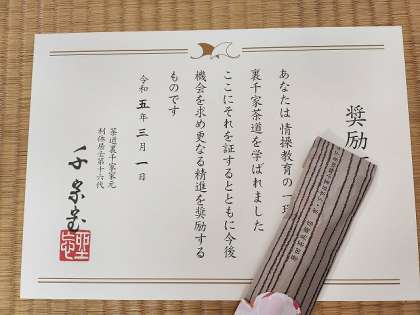 奨励
あなたは情操教育の一環
裏千家茶道を学ばれました
ここにそれを証するとともに今後
機会を求め更なる精進を奨励する
ものです
令和五年三月一日
茶道裏千家家元
利休居士第十六代
千宗室